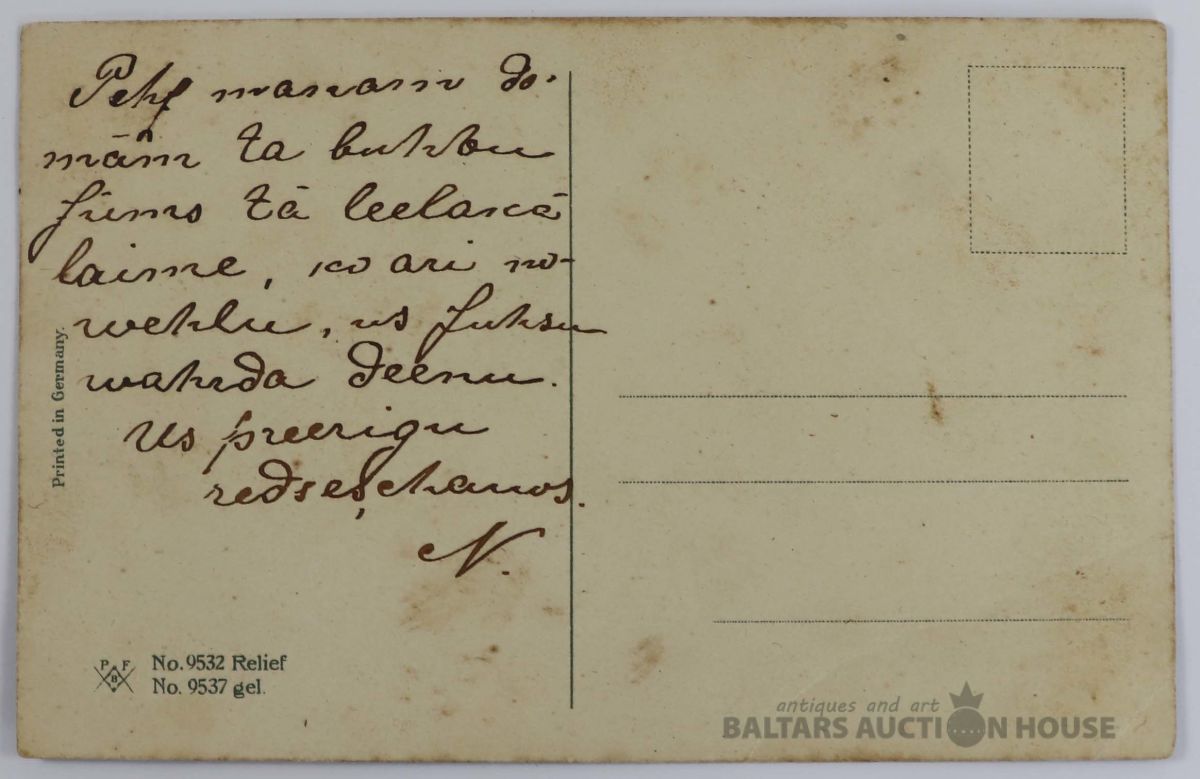 Pehz manam do-
mām ta buhtu
Jums tā leelakā
laime, ko ari no-
wehlu, us Juhsu
wahrda deenu.
Us preezigu
redseschanos.
N.
Printed in Germany.
P F B
No. 9532 Relief
No. 9537 gel.
antiques and art
BALTARS AUCTION HOUSE